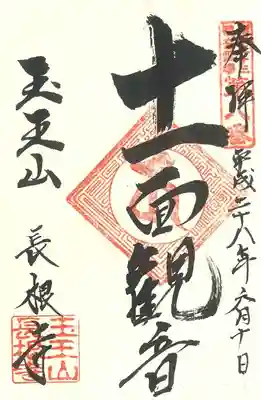 奉拝
平成二十八年六月十日
十一面観音
玉王山
長根寺
玉王山
長根寺